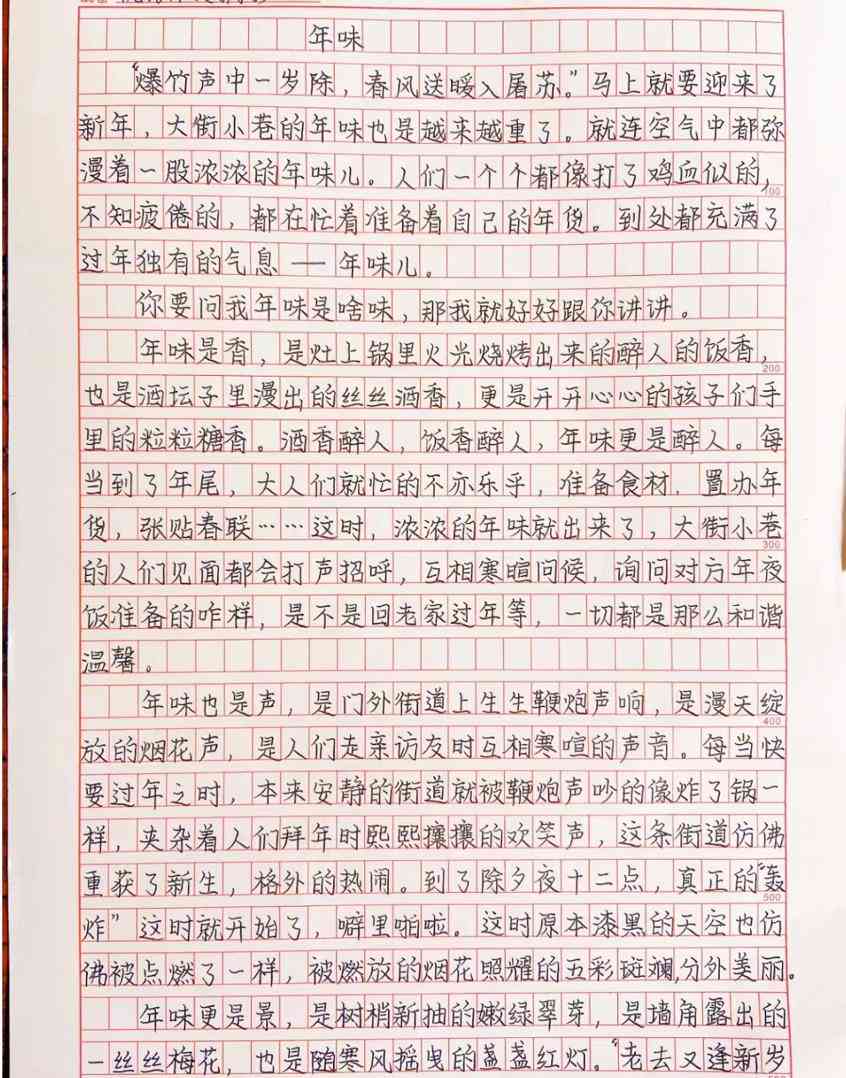 年味
“爆竹声中一岁除，春风送暖入屠苏。”马上就要迎来了
新年，大街小巷的年味也是越来越重了。就连空气中都弥
漫着一股浓浓的年味儿。人们一个个都像打了鸡血似的，
100
不知疲倦的，都在忙着准备着自己的年货。到处都充满了
过年独有的气息——年味儿。
你要问我年味是啥味，那我就好好跟你讲讲。
年味是香，是灶上锅里火光烧烤出来的醉人的饭香，
200
也是酒坛子里漫出的丝丝酒香，更是开开心心的孩子们手
里的粒粒糖香。酒香醉人，饭香醉人，年味更是醉人。每
当到了年尾，大人们就忙的不亦乐乎，准备食材，置办年
货，张贴春联……这时，浓浓的年味就出来了，大街小巷
300
的人们见面都会打声招呼，互相寒暄问候，询问对方年夜
饭准备的咋样，是不是回老家过年等，一切都是那么和谐
温馨。
年味也是声，是门外街道上生生鞭炮声响，是漫天绽
400
放的烟花声，是人们走亲访友时互相寒喧的声音。每当快
要过年之时，本来安静的街道就被鞭炮声吵的像炸了锅一
样，夹杂着人们拜年时熙熙攘攘的欢笑声，这条街道仿佛
重获了新生，格外的热闹。到了除夕夜十二点，真正的“轰
500
炸”这时就开始了，噼里啪啦。这时原本漆黑的天空也仿
佛被点燃了一样，被燃放的烟花照耀的五彩斑斓，分外美丽。
年味更是景，是树梢新抽的嫩绿翠芽，是墙角露出的
一丝丝梅花，也是随寒风摇曳的盏盏红灯。“老去又逢新岁